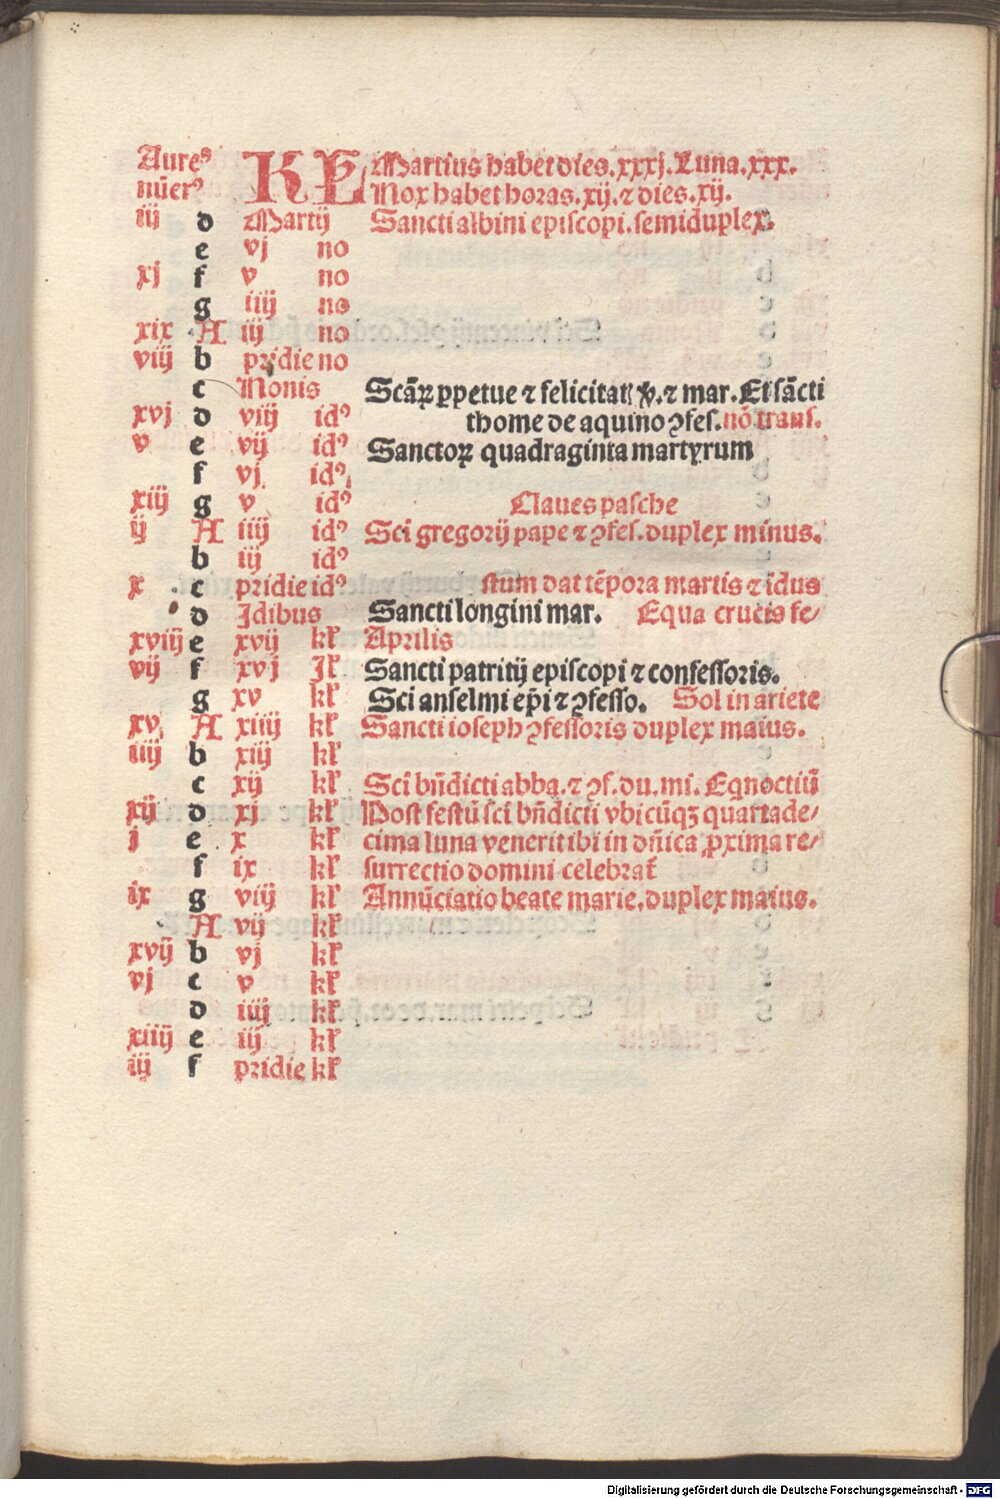 Aureꝰ KL Martius habet dies.xxxj.Luna.xxx.
nūerꝰ Nox habet horas.xij.⁊ dies.xij.
iij d Martij Sancti albini episcopi.semiduplex.
e vj no
xj f v no
g iiij no
xix A iij no
viij b pridie no
c Nonis Scāꝝ ꝑpetue ⁊ felicitat v̄.⁊ mar.Et sācti
xvj d viij idꝰ thome de aquino ꝯfes.nō trans.
v e vij idꝰ Sanctoꝝ quadraginta martyrum
f vj idꝰ
xiij g v idꝰ Claues pasche
ij A iiij idꝰ Sci gregorij pape ⁊ ꝯfes.duplex minus.
b iij idꝰ
x c pridie idꝰ stum dat tēpora martis ⁊ idus
d Idibus Sancti longini mar. Equa crucis fe/
xviij e xvij kl Aprilis
vij f xvj kl Sancti patritij episcopi ⁊ confessoris.
g xv kl Sci anselmi ep̄i ⁊ ꝯfesso. Sol in ariete
xv A xiiij kl Sancti ioseph ꝯfessoris duplex maius.
iiij b xiij kl
c xij kl Sci bn̄dicti abba.⁊ ꝯf.du.mi. Eqnoctiū
xij d xj kl Post festū sci bn̄dicti vbicūqꝫ quartade/
j e x kl cima luna venerit ibi in dn̄ica ꝓxima re/
f ix kl surrectio domini celebrat̄
ix g viij kl Annūciatio beate marie.duplex maius.
A vij kl
xvij b vj kl
vj c v kl
d iiij kl
xiiij e iij kl
iij f pridie kl
Digitalisierung gefördert durch die Deutsche Forschungsgemeinschaft - DFG